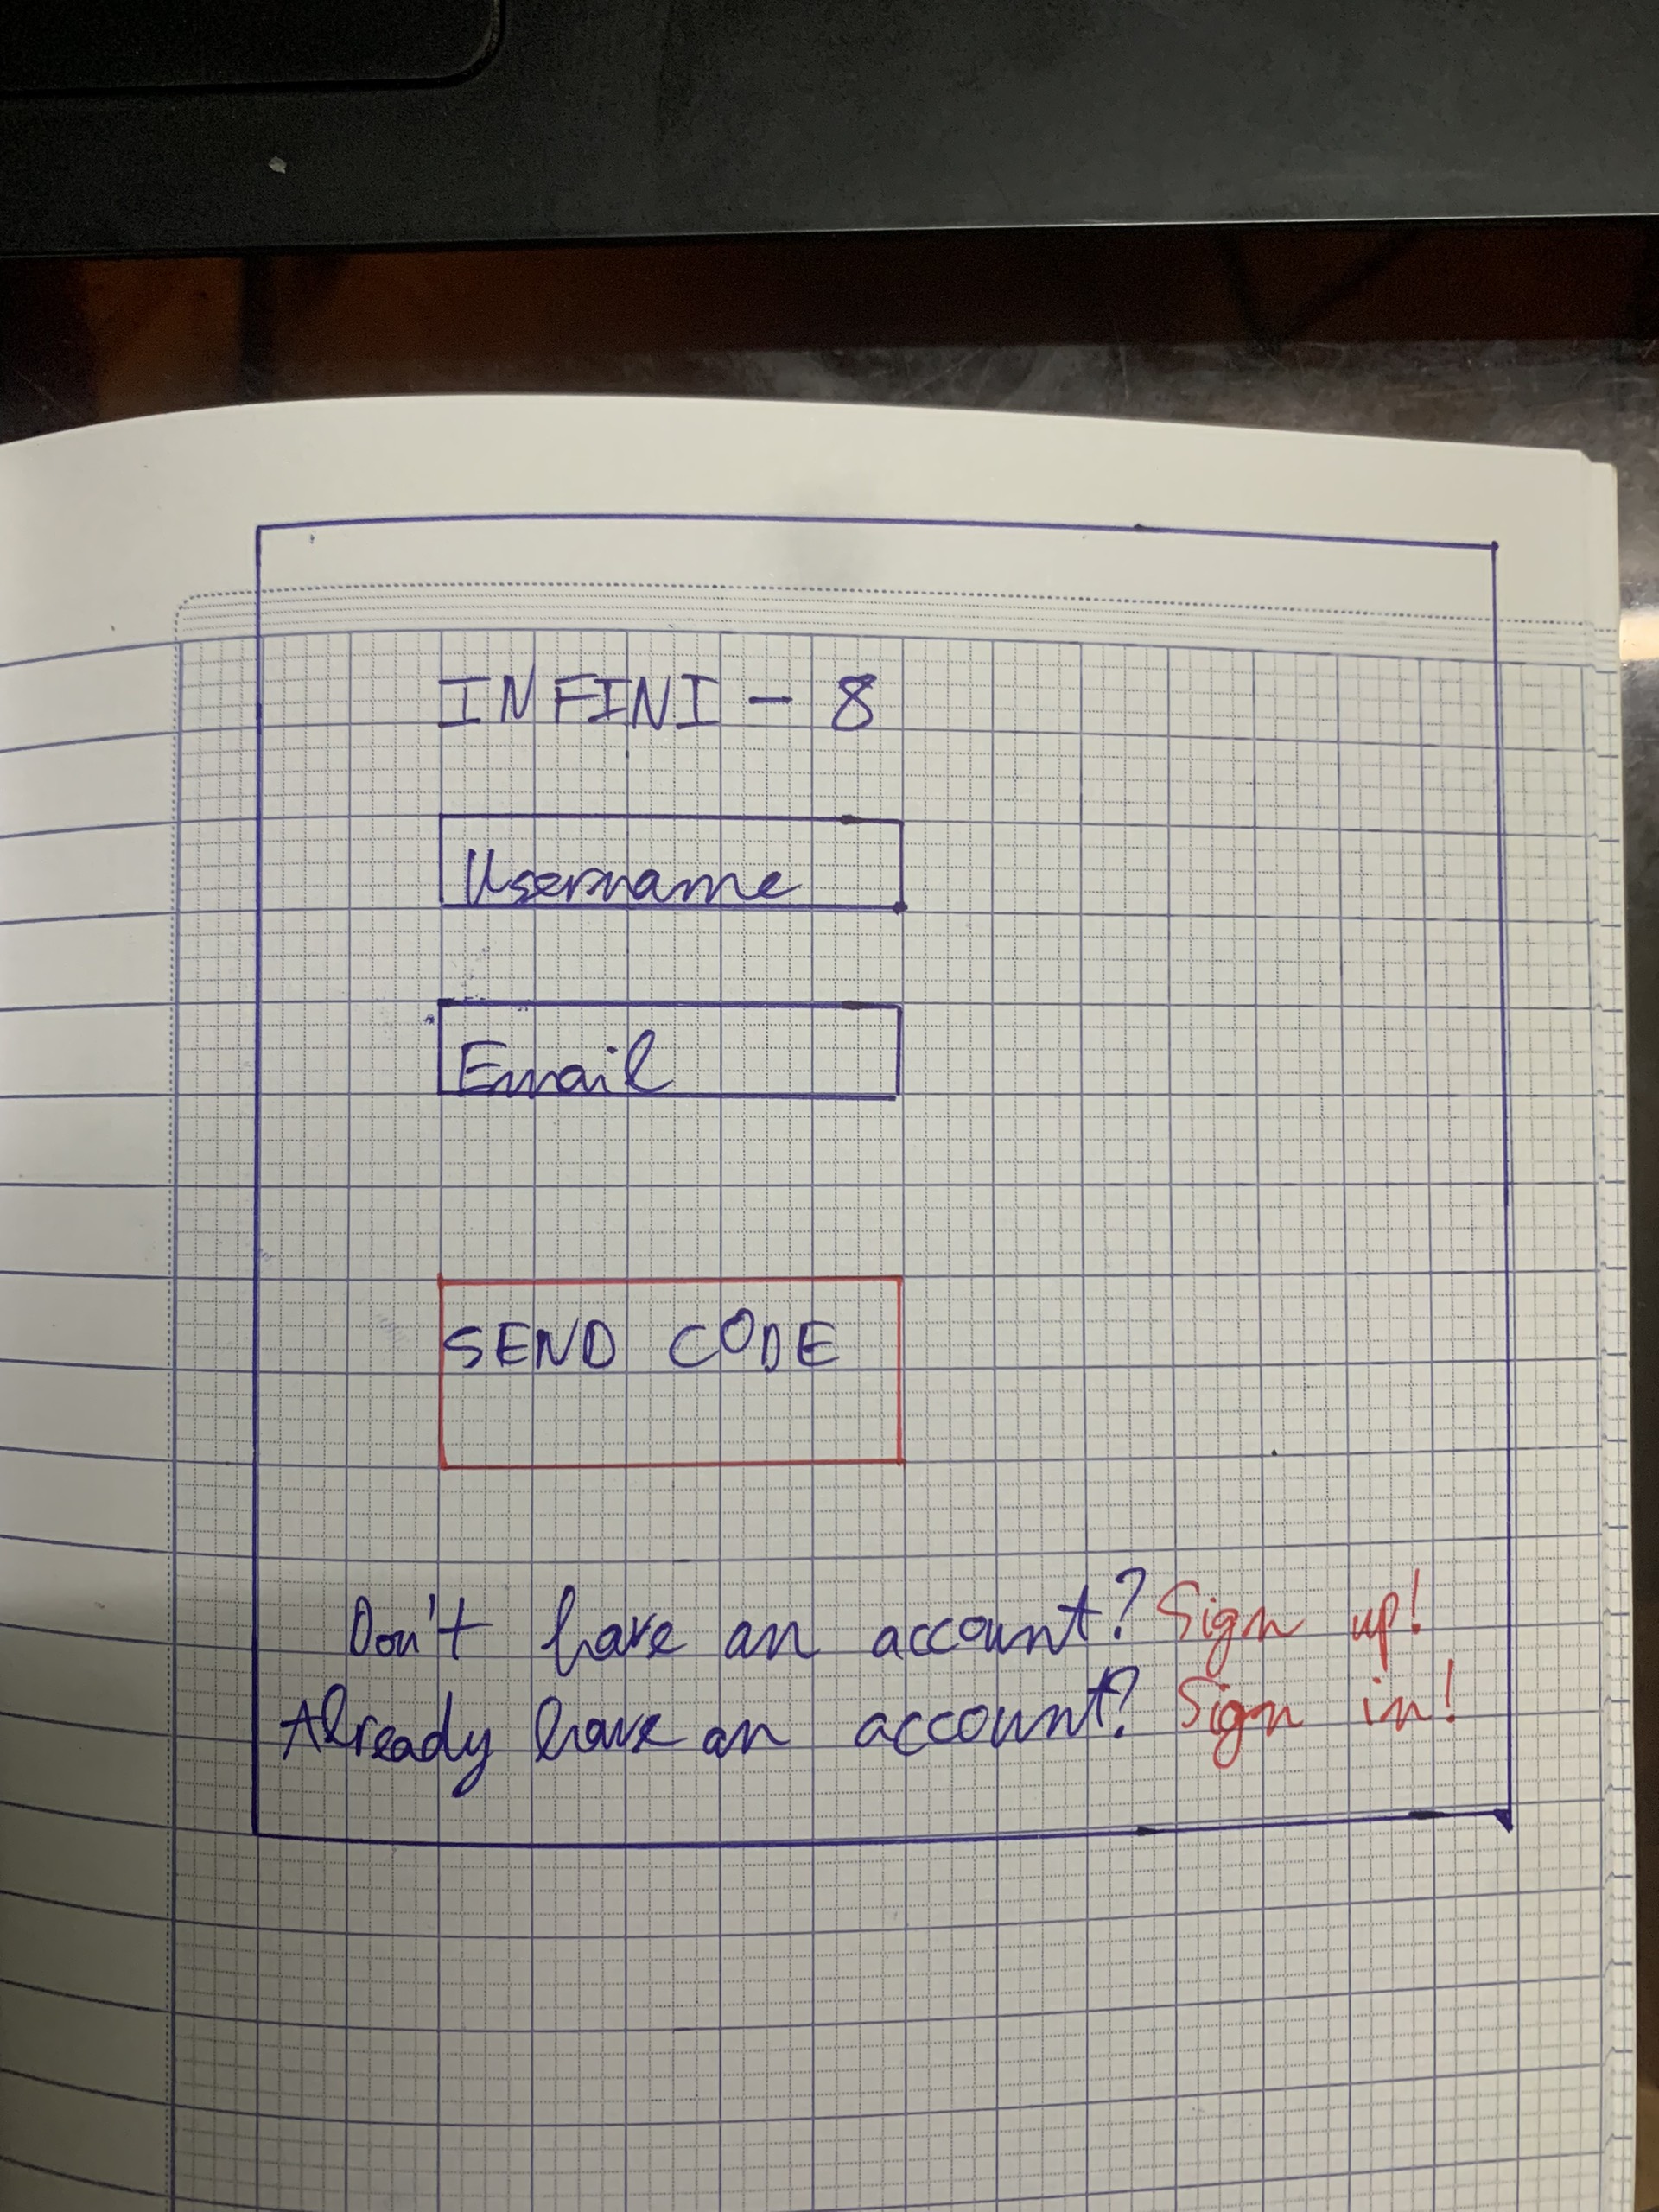 INFINI - 8
Username
Email
SEND CODE
Don't have an account? Sign up!
Already have an account? Sign in!